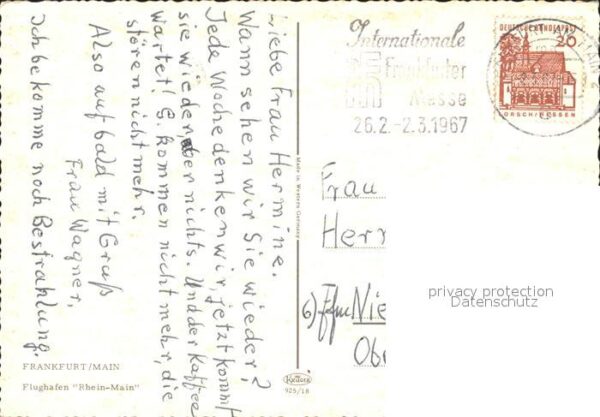 Liebe Frau Hermine.
Wann sehen wir Sie wieder?
Jede Woche denken wir, jetzt kommt
sie wieder, aber nichts. Und der Kaffee
wartet! G. kommen nicht mehr, die
stören nicht mehr.
Also auf bald mit Gruß
Frau Wagner,
Ich bekomme noch Bestrahlung.
FRANKFURT/MAIN
Flughafen "Rhein-Main"
Made in Western Germany
Krüger
925/18
Internationale
Frankfurter
Messe
26.2.-2.3.1967
DEUTSCHE BUNDESPOST
20
LORSCH/HESSEN
Frau
Herr
6) Ffm Nie
Obe
privacy protection
Datenschutz